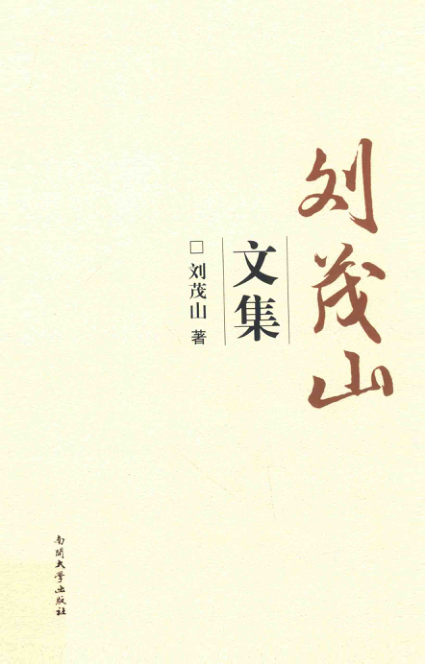 刘茂山
文集
□刘茂山 著
南開大学出版社